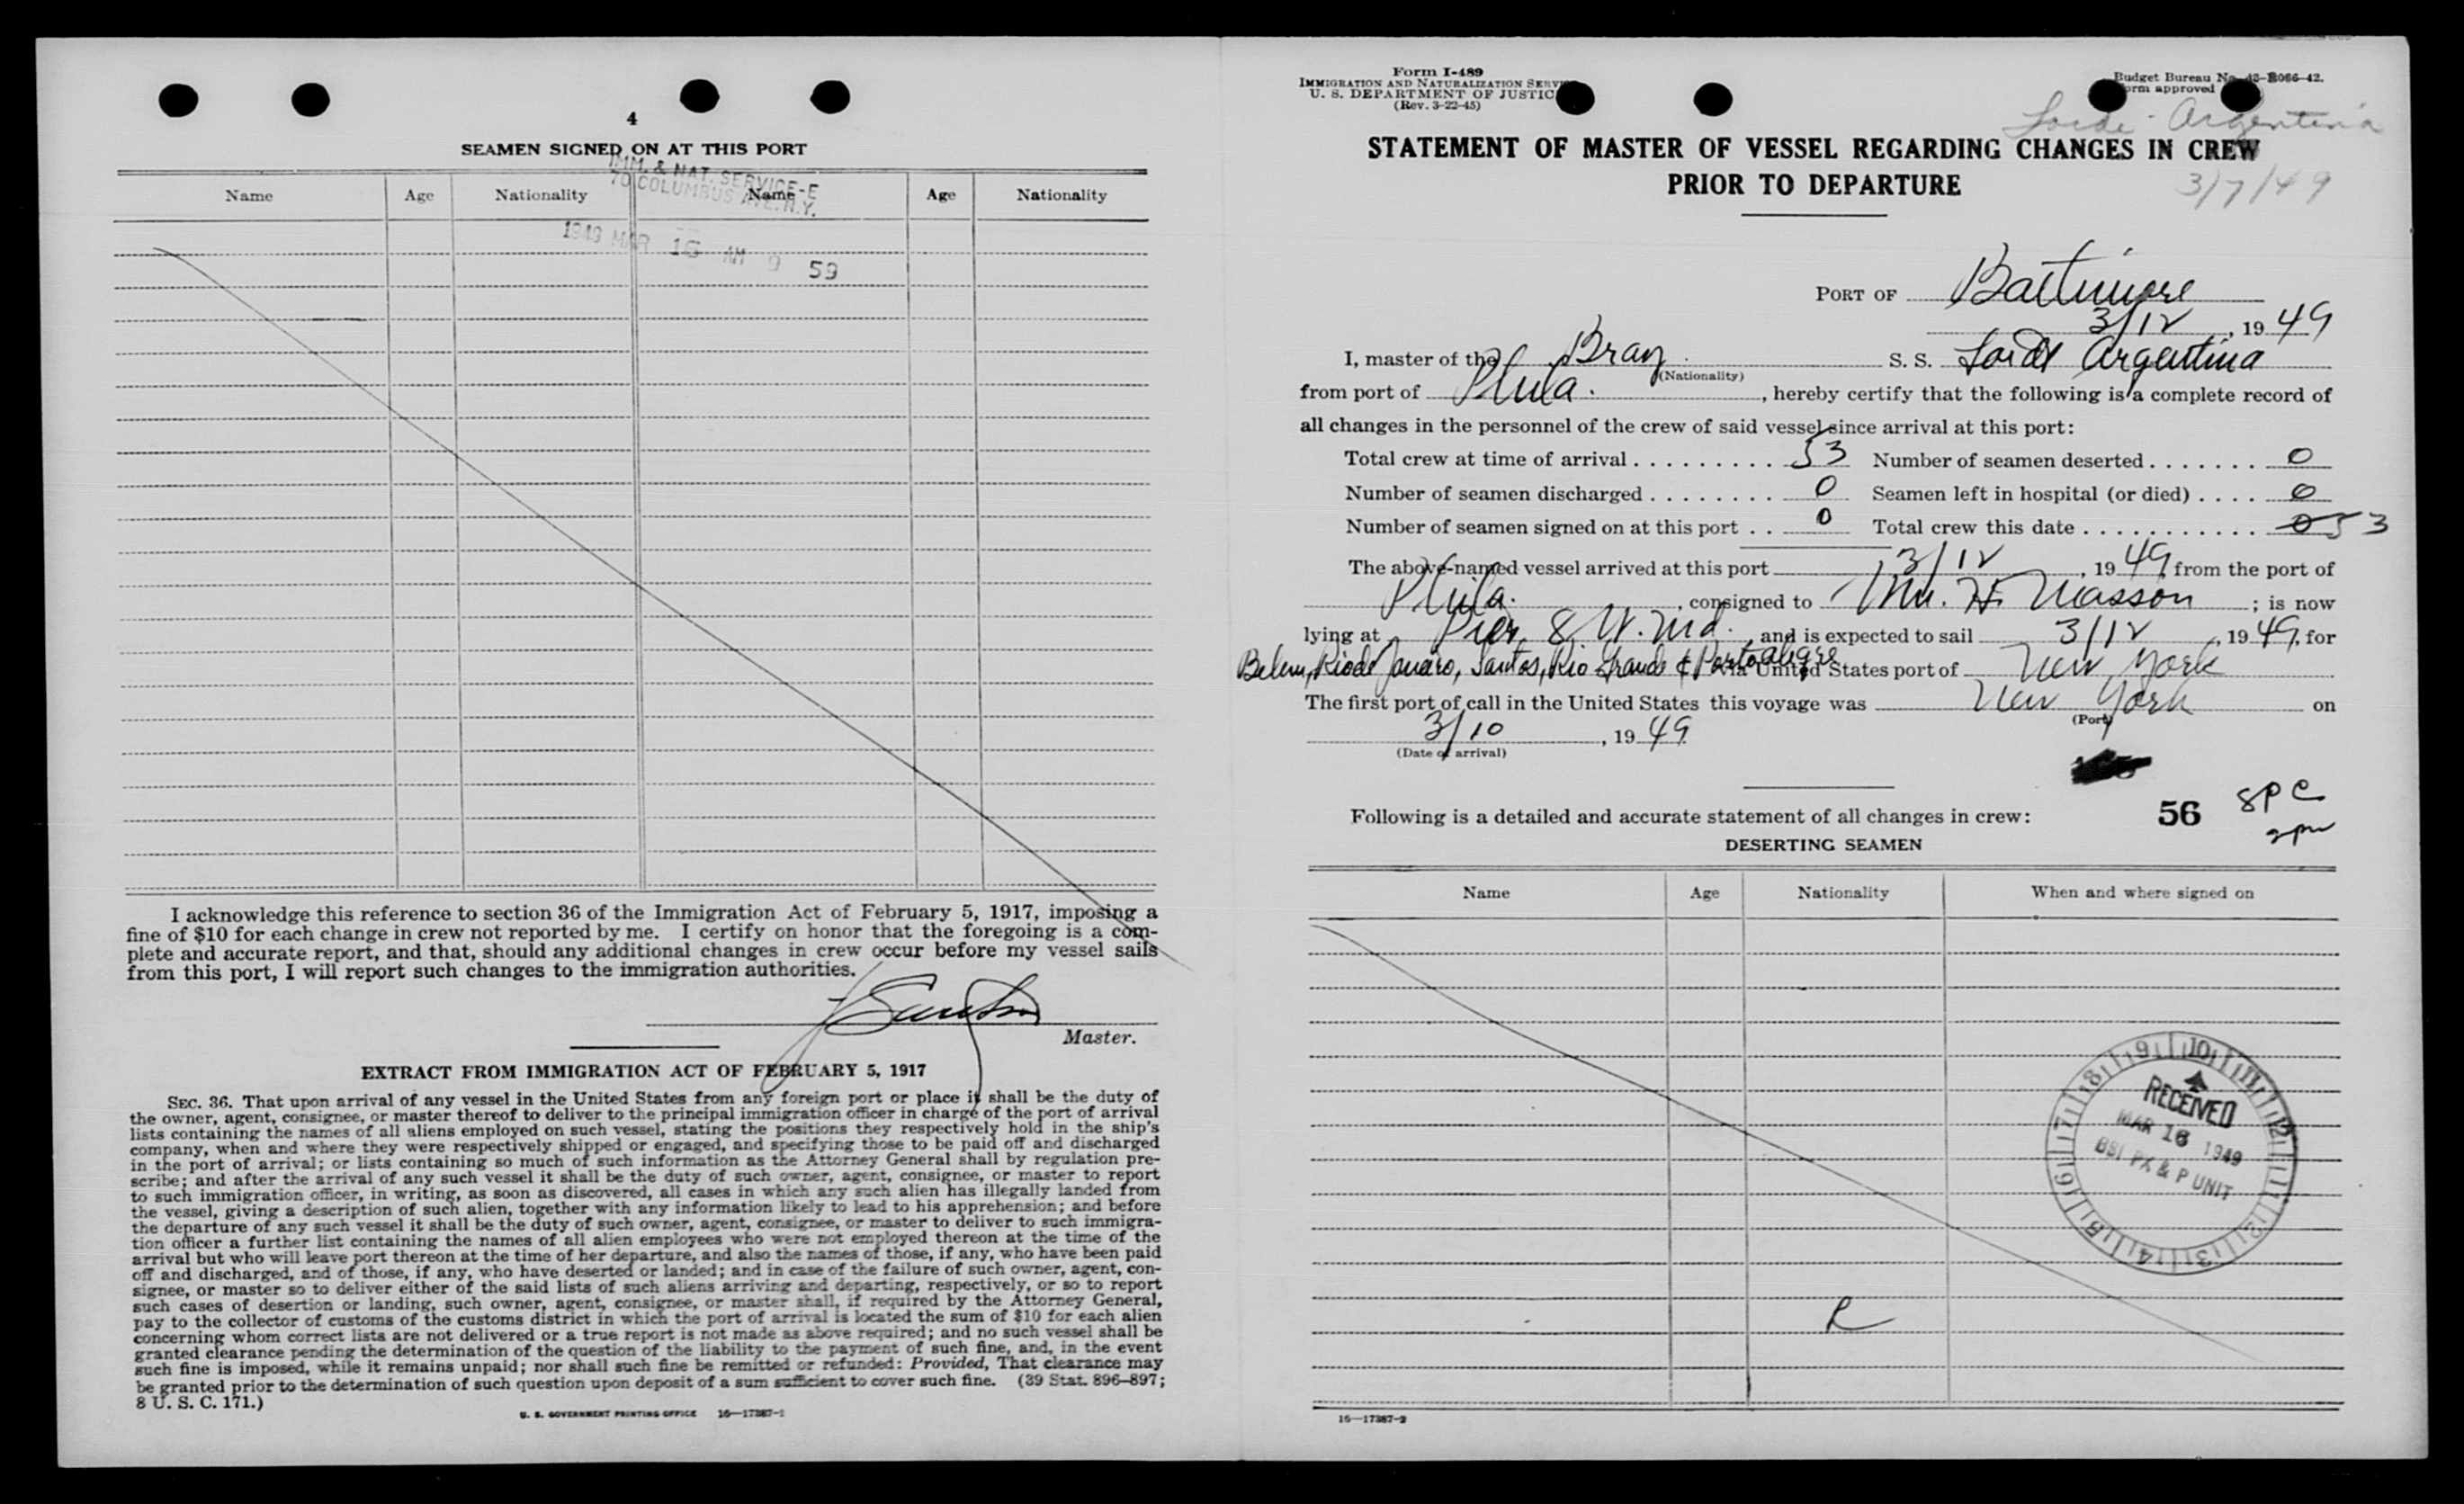 4
SEAMEN SIGNED ON AT THIS PORT
IMM. & NAT. SERVICE-E
70 COLUMBUS AVE. N.Y.
Name Age Nationality Name Age Nationality
1949 MAR 16 AM 9 59
I acknowledge this reference to section 36 of the Immigration Act of February 5, 1917, imposing a
fine of $10 for each change in crew not reported by me. I certify on honor that the foregoing is a com-
plete and accurate report, and that, should any additional changes in crew occur before my vessel sails
from this port, I will report such changes to the immigration authorities.
Master.
EXTRACT FROM IMMIGRATION ACT OF FEBRUARY 5, 1917
SEC. 36. That upon arrival of any vessel in the United States from any foreign port or place it shall be the duty of
the owner, agent, consignee, or master thereof to deliver to the principal immigration officer in charge of the port of arrival
lists containing the names of all aliens employed on such vessel, stating the positions they respectively hold in the ship's
company, when and where they were respectively shipped or engaged, and specifying those to be paid off and discharged
in the port of arrival; or lists containing so much of such information as the Attorney General shall by regulation pre-
scribe; and after the arrival of any such vessel it shall be the duty of such owner, agent, consignee, or master to report
to such immigration officer, in writing, as soon as discovered, all cases in which any such alien has illegally landed from
the vessel, giving a description of such alien, together with any information likely to lead to his apprehension; and before
the departure of any such vessel it shall be the duty of such owner, agent, consignee, or master to deliver to such immigra-
tion officer a further list containing the names of all alien employees who were not employed thereon at the time of the
arrival but who will leave port thereon at the time of her departure, and also the names of those, if any, who have been paid
off and discharged, and of those, if any, who have deserted or landed; and in case of the failure of such owner, agent, con-
signee, or master so to deliver either of the said lists of such aliens arriving and departing, respectively, or so to report
such cases of desertion or landing, such owner, agent, consignee, or master shall, if required by the Attorney General,
pay to the collector of customs of the customs district in which the port of arrival is located the sum of $10 for each alien
concerning whom correct lists are not delivered or a true report is not made as above required; and no such vessel shall be
granted clearance pending the determination of the question of the liability to the payment of such fine, and, in the event
such fine is imposed, while it remains unpaid; nor shall such fine be remitted or refunded: Provided, That clearance may
be granted prior to the determination of such question upon deposit of a sum sufficient to cover such fine. (39 Stat. 896-897;
8 U. S. C. 171.)
U. S. GOVERNMENT PRINTING OFFICE 16—17387-1
Form I-489
IMMIGRATION AND NATURALIZATION SERV
U. S. DEPARTMENT OF JUSTIC
(Rev. 3-22-45)
Budget Bureau No. 43-R066-42.
orm approved
Loide Argentina
STATEMENT OF MASTER OF VESSEL REGARDING CHANGES IN CREW
PRIOR TO DEPARTURE
3/7/49
PORT OF Baltimore
3/12, 1949
I, master of the Braz. S. S. Loide Argentina
(Nationality)
from port of Phila., hereby certify that the following is a complete record of
all changes in the personnel of the crew of said vessel since arrival at this port:
Total crew at time of arrival . . . . . . . . . . 53 Number of seamen deserted . . . . . . . 0
Number of seamen discharged . . . . . . . . 0 Seamen left in hospital (or died) . . . . 0
Number of seamen signed on at this port . . 0 Total crew this date . . . . . . . . . . . . 0 53
The above-named vessel arrived at this port 3/12, 1949, from the port of
Phila., consigned to Wm. H. Masson; is now
lying at Pier 8 W. Md., and is expected to sail 3/12, 1949, for
Belem, Rio de Janeiro, Santos, Rio Grande & Porto Alegre via United States port of New York
The first port of call in the United States this voyage was New York on
(Port)
3/10, 1949
(Date of arrival)
Following is a detailed and accurate statement of all changes in crew: 56 8PC
DESERTING SEAMEN
Name Age Nationality When and where signed on
9 10 11 12 1 2 3 4 5 6 7 8
RECEIVED
MAR 16 1949
BSI PX & P UNIT
R
16—17387-2